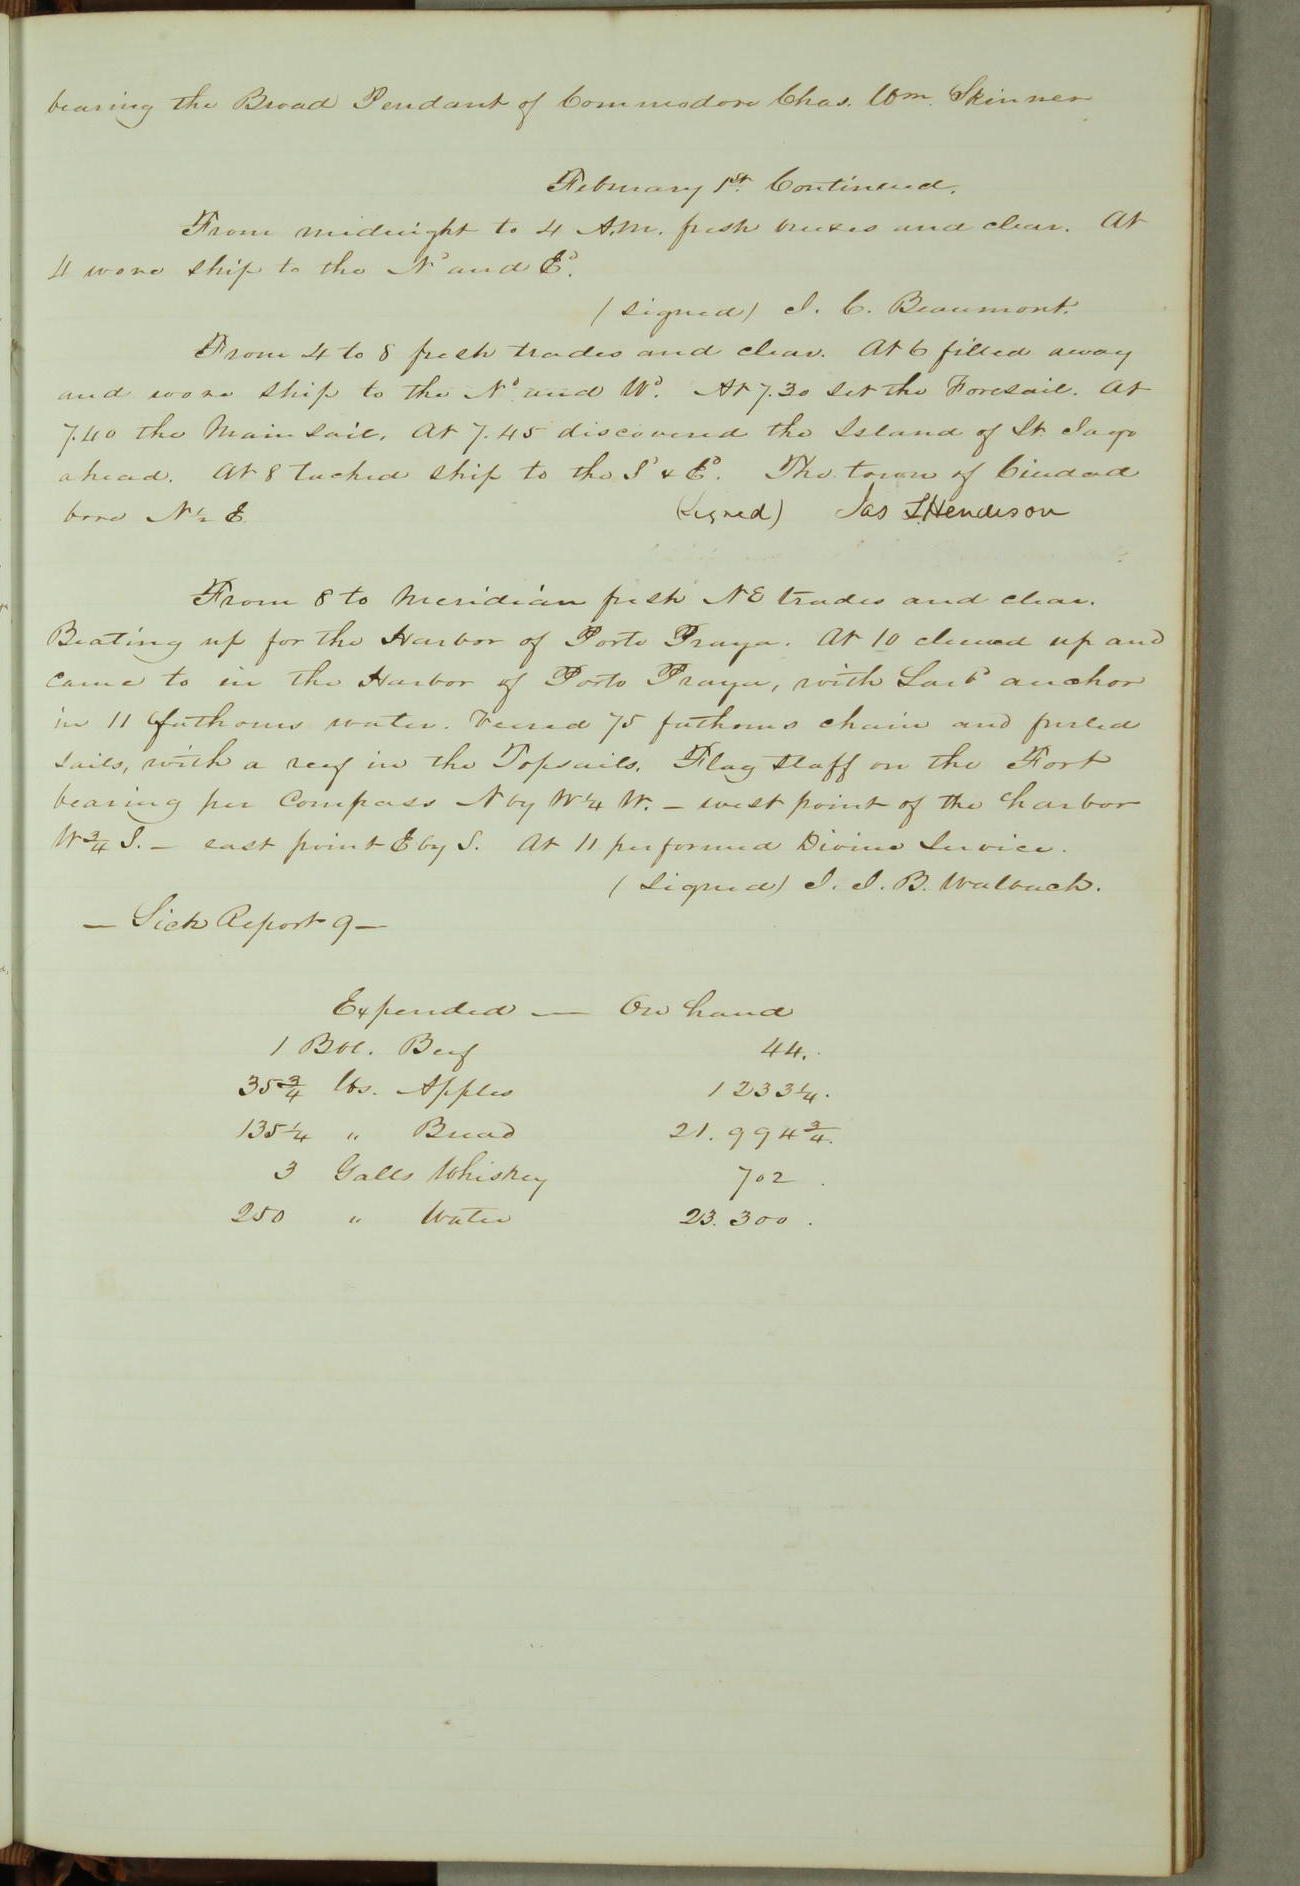 bearing the Broad Pendant of Commodore Chas. Wm. Skinner
February 1st. Continued.
From midnight to 4 A.M. fresh breezes and clear. At
4 wore ship to the Nd and Ed.
(signed) J. C. Beaumont.
From 4 to 8 fresh trades and clear. At 6 filled away
and wore ship to the Nd and Wd. At 7.30 set the Foresail. At
7.40 the Mainsail. At 7.45 discovered the Island of St. Jago
ahead. At 8 tacked ship to the Sd & Ed. The town of Ciudad
bore N ½ E
(signed) Jas S. Henderson
From 8 to Meridian fresh NE trades and clear.
Beating up for the Harbor of Porto Praya. At 10 clewed up and
came to in the Harbor of Porto Praya, with Larbd anchor
in 11 fathoms water. Veered 75 fathoms chain and furled
sails, with a reef in the Topsails. Flag staff on the Fort
bearing per Compass N by W ¼ W. — west point of the harbor
W ¾ S. — east point E by S. At 11 performed Divine Service.
(signed) J. J. B. Walbach.
— Sick Report 9 —
Expended — On hand
1 Bbl. Beef 44.
35 ¾ lbs. Apples 1233 ¼.
135 ¼ " Bread 21.994 ¾.
3 Galls Whiskey 702.
250 " Water 23.300.